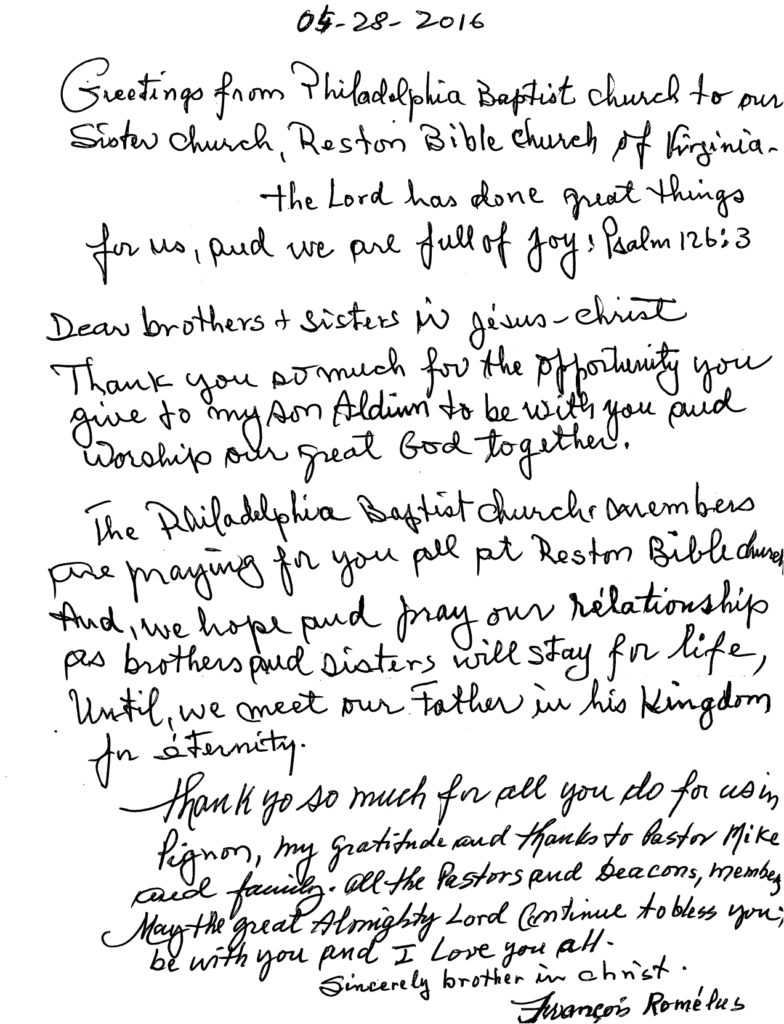 05-28-2016
Greetings from Philadelphia Baptist church to our
Sister church, Reston Bible church of Virginia-
the Lord has done great things
for us, and we are full of joy: Psalm 126:3
Dear brothers + sisters in jésus-christ
Thank you so much for the opportunity you
give to my son to be with you and
worship our great God together.
The Philadelphia Baptist church members
are praying for you all at Reston Bible church
And, we hope and pray our rélationship
as brothers and sisters will stay for life,
Until, we meet our Father in his Kingdom
for éternity.
Thank yo so much for all you do for us in
Pignon, my gratitude and thanks to Pastor Mike
and family. all the Pastors and Deacons, members
May the great Almighty Lord Continue to bless you,
be with you and I Love you all.
Sincerely brother in christ.
François Romélus